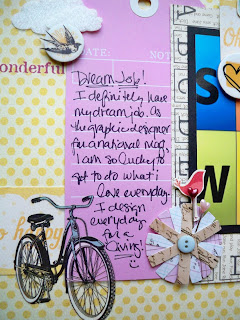 ATE:
NOT
wonderful
Dream Job!
I definitely have
my dream job. As
the graphic designer
for a national mag,
I am so lucky to
get to do what i
love everyday.
I design
everyday
for a
living!
oh happy
ABCD